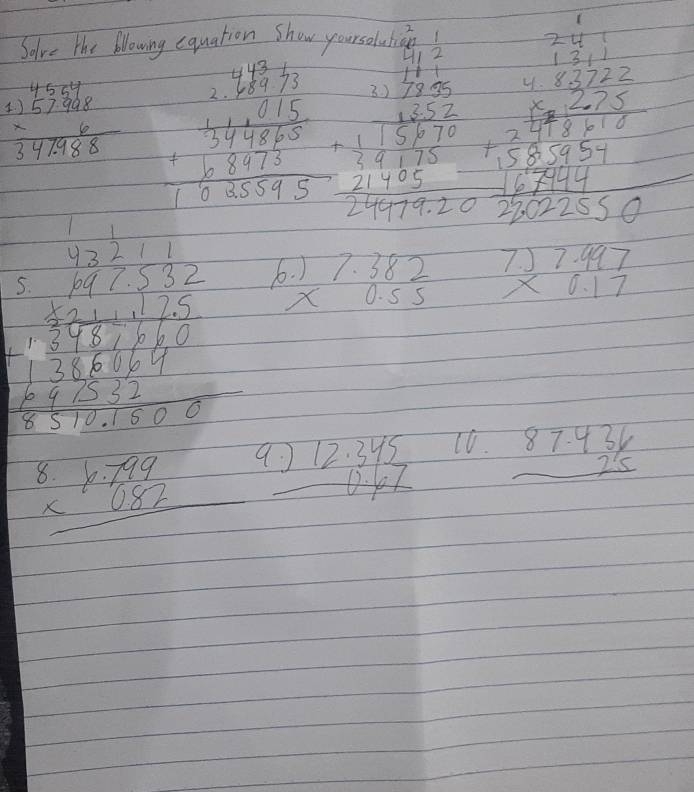 Solve the following equation Show your solution
4554
1.) 57.998
x 6
347.988
443 1
2. 689.73
015
344865
+ 68973
103.5595
2 1
412
111
3.) 7835
3.52
15670
+ 39175
21405
24479.20
1
241
1311
4. 83722
x 2.75
2418610
+ 585954
167444
22.022550
1 1
43211
5. 697.532
x 12.5
3487660
+ 1386064
697532
8510.1500
6.) 7.382
x 0.55
7.) 7.997
x 0.17
8. 6.799
x 0.82
9.) 12.345
0.67
10. 87.436
25